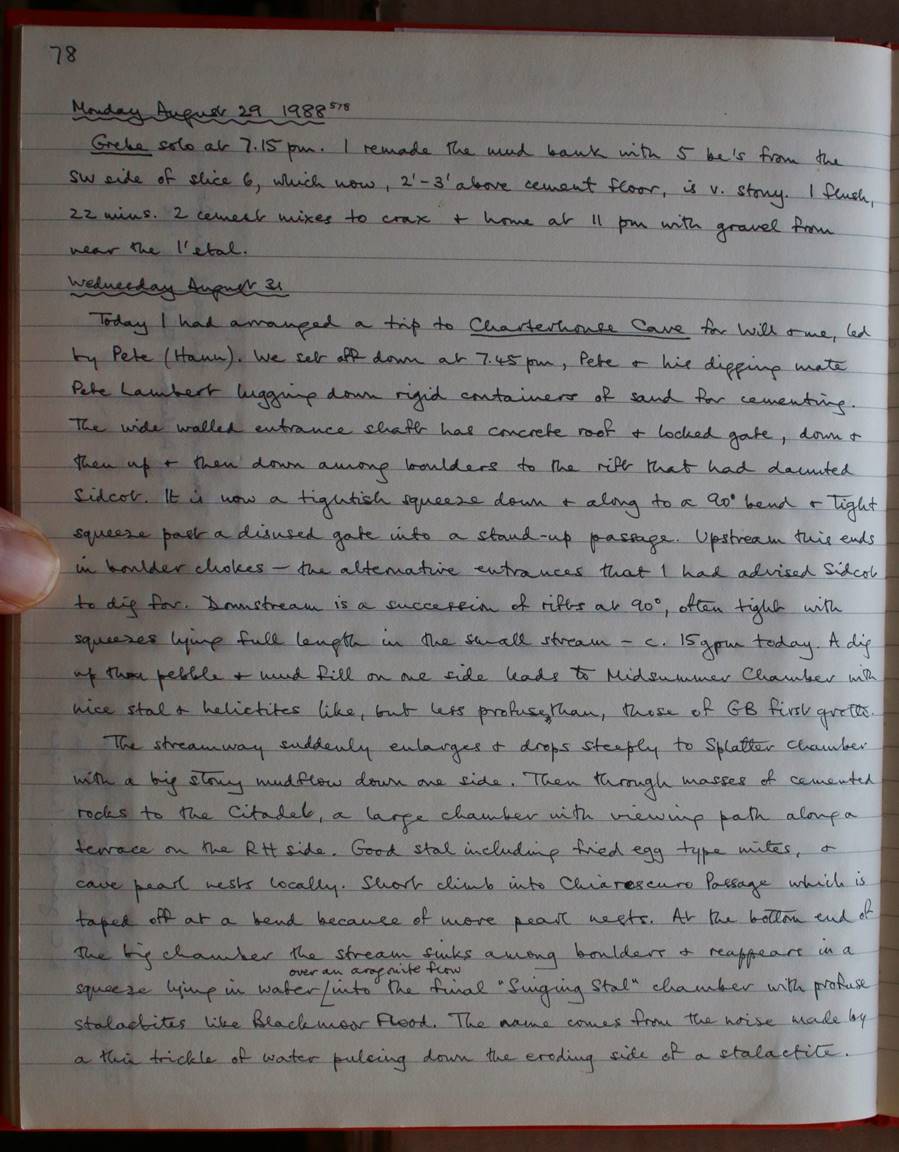 78
Monday August 29 1988 578
Grebe solo at 7.15 pm. I remade the mud bank with 5 be's from the
SW side of slice 6, which now, 2'-3' above cement floor, is v. stony. 1 flush,
22 mins. 2 cement mixes to crax + home at 11 pm with gravel from
near the 1' etal.
Wednesday August 31
Today I had arranged a trip to Charterhouse Cave for Will + me, led
by Pete (Hann). We set off down at 7.45 pm, Pete + his digging mate
Pete Lambert lugging down rigid containers of sand for cementing.
The wide walled entrance shaft has concrete roof + locked gate, down +
then up + then down among boulders to the rift that had daunted
Sidcot. It is now a tightish squeeze down + along to a 90° bend + tight
squeeze past a disused gate into a stand-up passage. Upstream this ends
in boulder chokes - the alternative entrances that I had advised Sidcot
to dig for. Downstream is a succession of rifts at 90°, often tight with
squeezes lying full length in the small stream - c. 15 gpm today. A dig
up thru pebble + mud fill on one side leads to Midsummer Chamber with
nice stal + helictites like, but less profuse, than, those of GB first grotto.
The streamway suddenly enlarges + drops steeply to Splatter Chamber
with a big stony mudflow down one side. Then through masses of cemented
rocks to the Citadel, a large chamber with viewing path along a
terrace on the RH side. Good stal including fried egg type mites, +
cave pearl nests locally. Short climb into Chiaroscuro Passage which is
taped off at a bend because of more pearl nests. At the bottom end of
the big chamber the stream sinks among boulders + reappears in a
over an aragnite flow
squeeze lying in water / into the final "Singing Stal" chamber with profuse
stalactites like Blackmoor Flood. The name comes from the noise made by
a thin trickle of water pulsing down the eroding side of a stalactite.